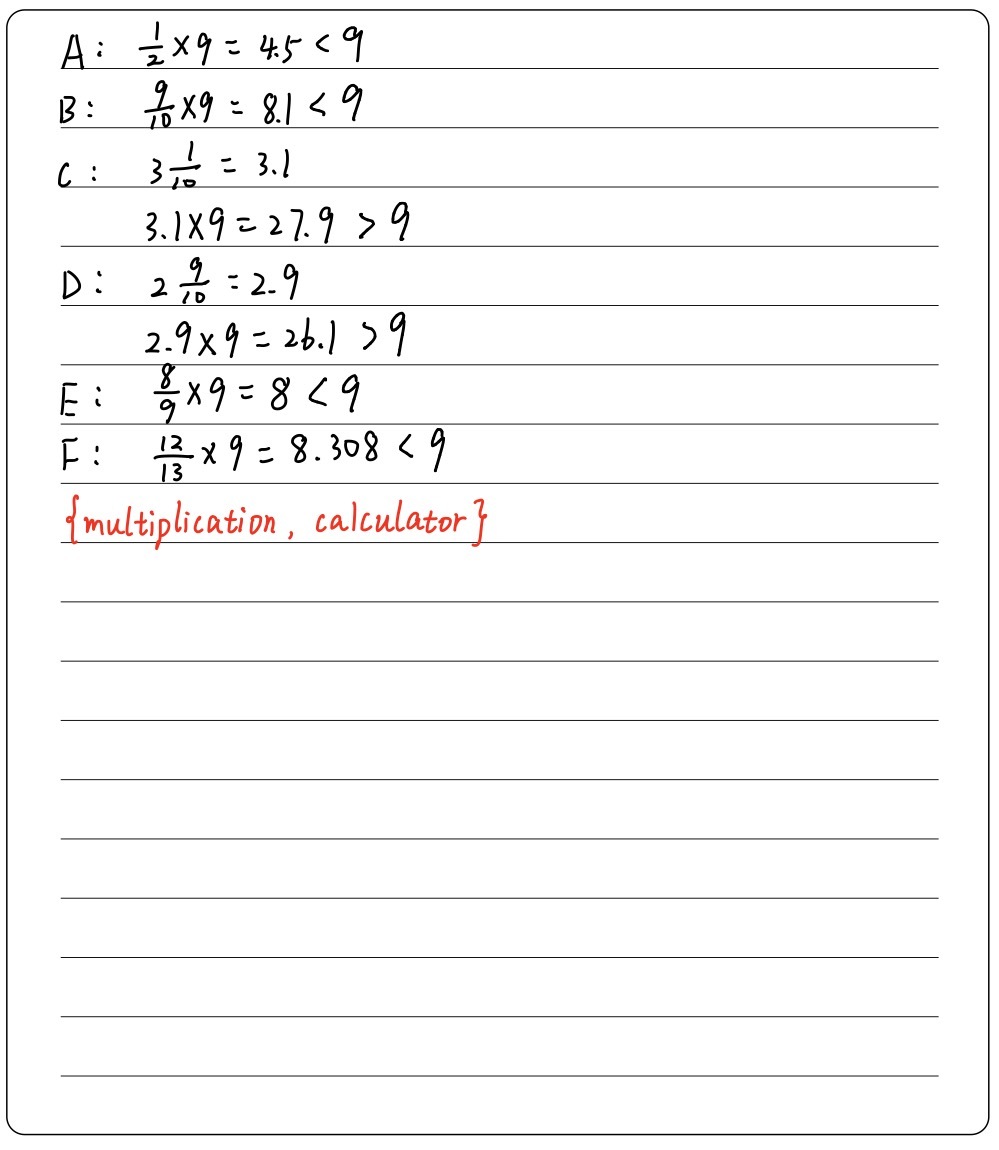 A: 1/2 × 9 = 4.5 < 9
B: 9/10 × 9 = 8.1 < 9
C: 3 1/10 = 3.1
3.1 × 9 = 27.9 > 9
D: 2 9/10 = 2.9
2.9 × 9 = 26.1 > 9
E: 8/9 × 9 = 8 < 9
F: 12/13 × 9 = 8.308 < 9
{multiplication, calculator}